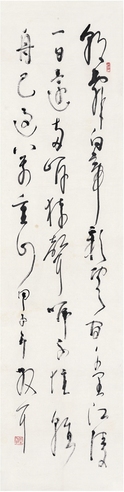 朝辭白帝彩雲間千里江陵
一日還兩岸猿聲啼不住輕
舟已過万重山甲子年散耳